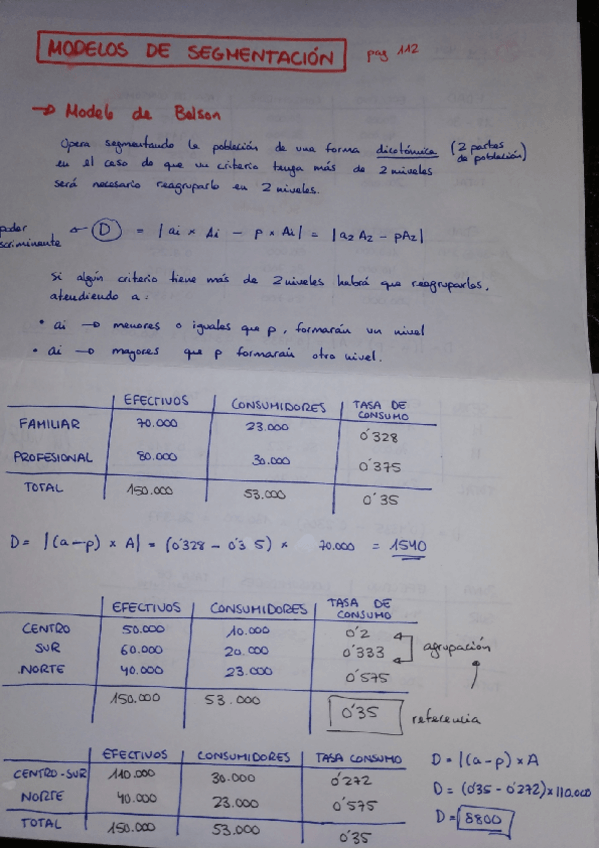 MODELOS DE SEGMENTACIÓN pag 112
→ Modelo de Belson
Opera segmentando la población de una forma dicotómica (2 partes de población)
en el caso de que un criterio tenga más de 2 niveles
será necesario reagruparlo en 2 niveles.
poder
scriminente ← D = | ai × Ai - p × Ai | = | a2 A2 - pA2 |
Si algún criterio tiene más de 2 niveles habrá que reagruparlos,
atendiendo a:
• ai → menores o iguales que p, formarán un nivel
• ai → mayores que p formarán otro nivel.
EFECTIVOS CONSUMIDORES TASA DE CONSUMO
FAMILIAR 70.000 23.000 0'328
PROFESIONAL 80.000 30.000 0'375
TOTAL 150.000 53.000 0'35
D = |(a-p) × A| = (0'328 - 0'35) × 70.000 = 1540
EFECTIVOS CONSUMIDORES TASA DE CONSUMO
CENTRO 50.000 10.000 0'2
SUR 60.000 20.000 0'333 agrupación
NORTE 40.000 23.000 0'575
150.000 53.000 0'35 referencia
EFECTIVOS CONSUMIDORES TASA CONSUMO
CENTRO-SUR 110.000 30.000 0'272
NORTE 40.000 23.000 0'575
TOTAL 150.000 53.000 0'35
D = |(a-p) × A
D = (0'35 - 0'272) × 110.000
D = 8800